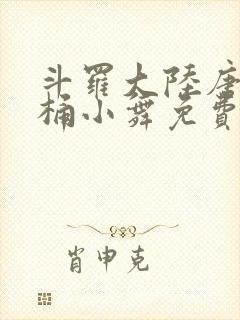 斗羅大陸唐
桶小舞免費
肖申克